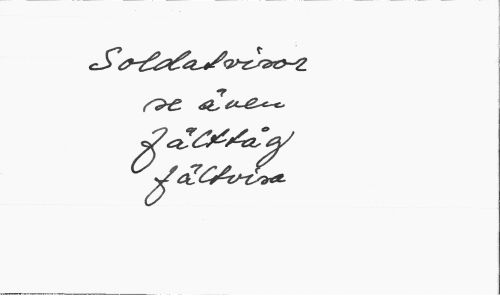 Soldatvisor
se även
fälttåg
fältvisa